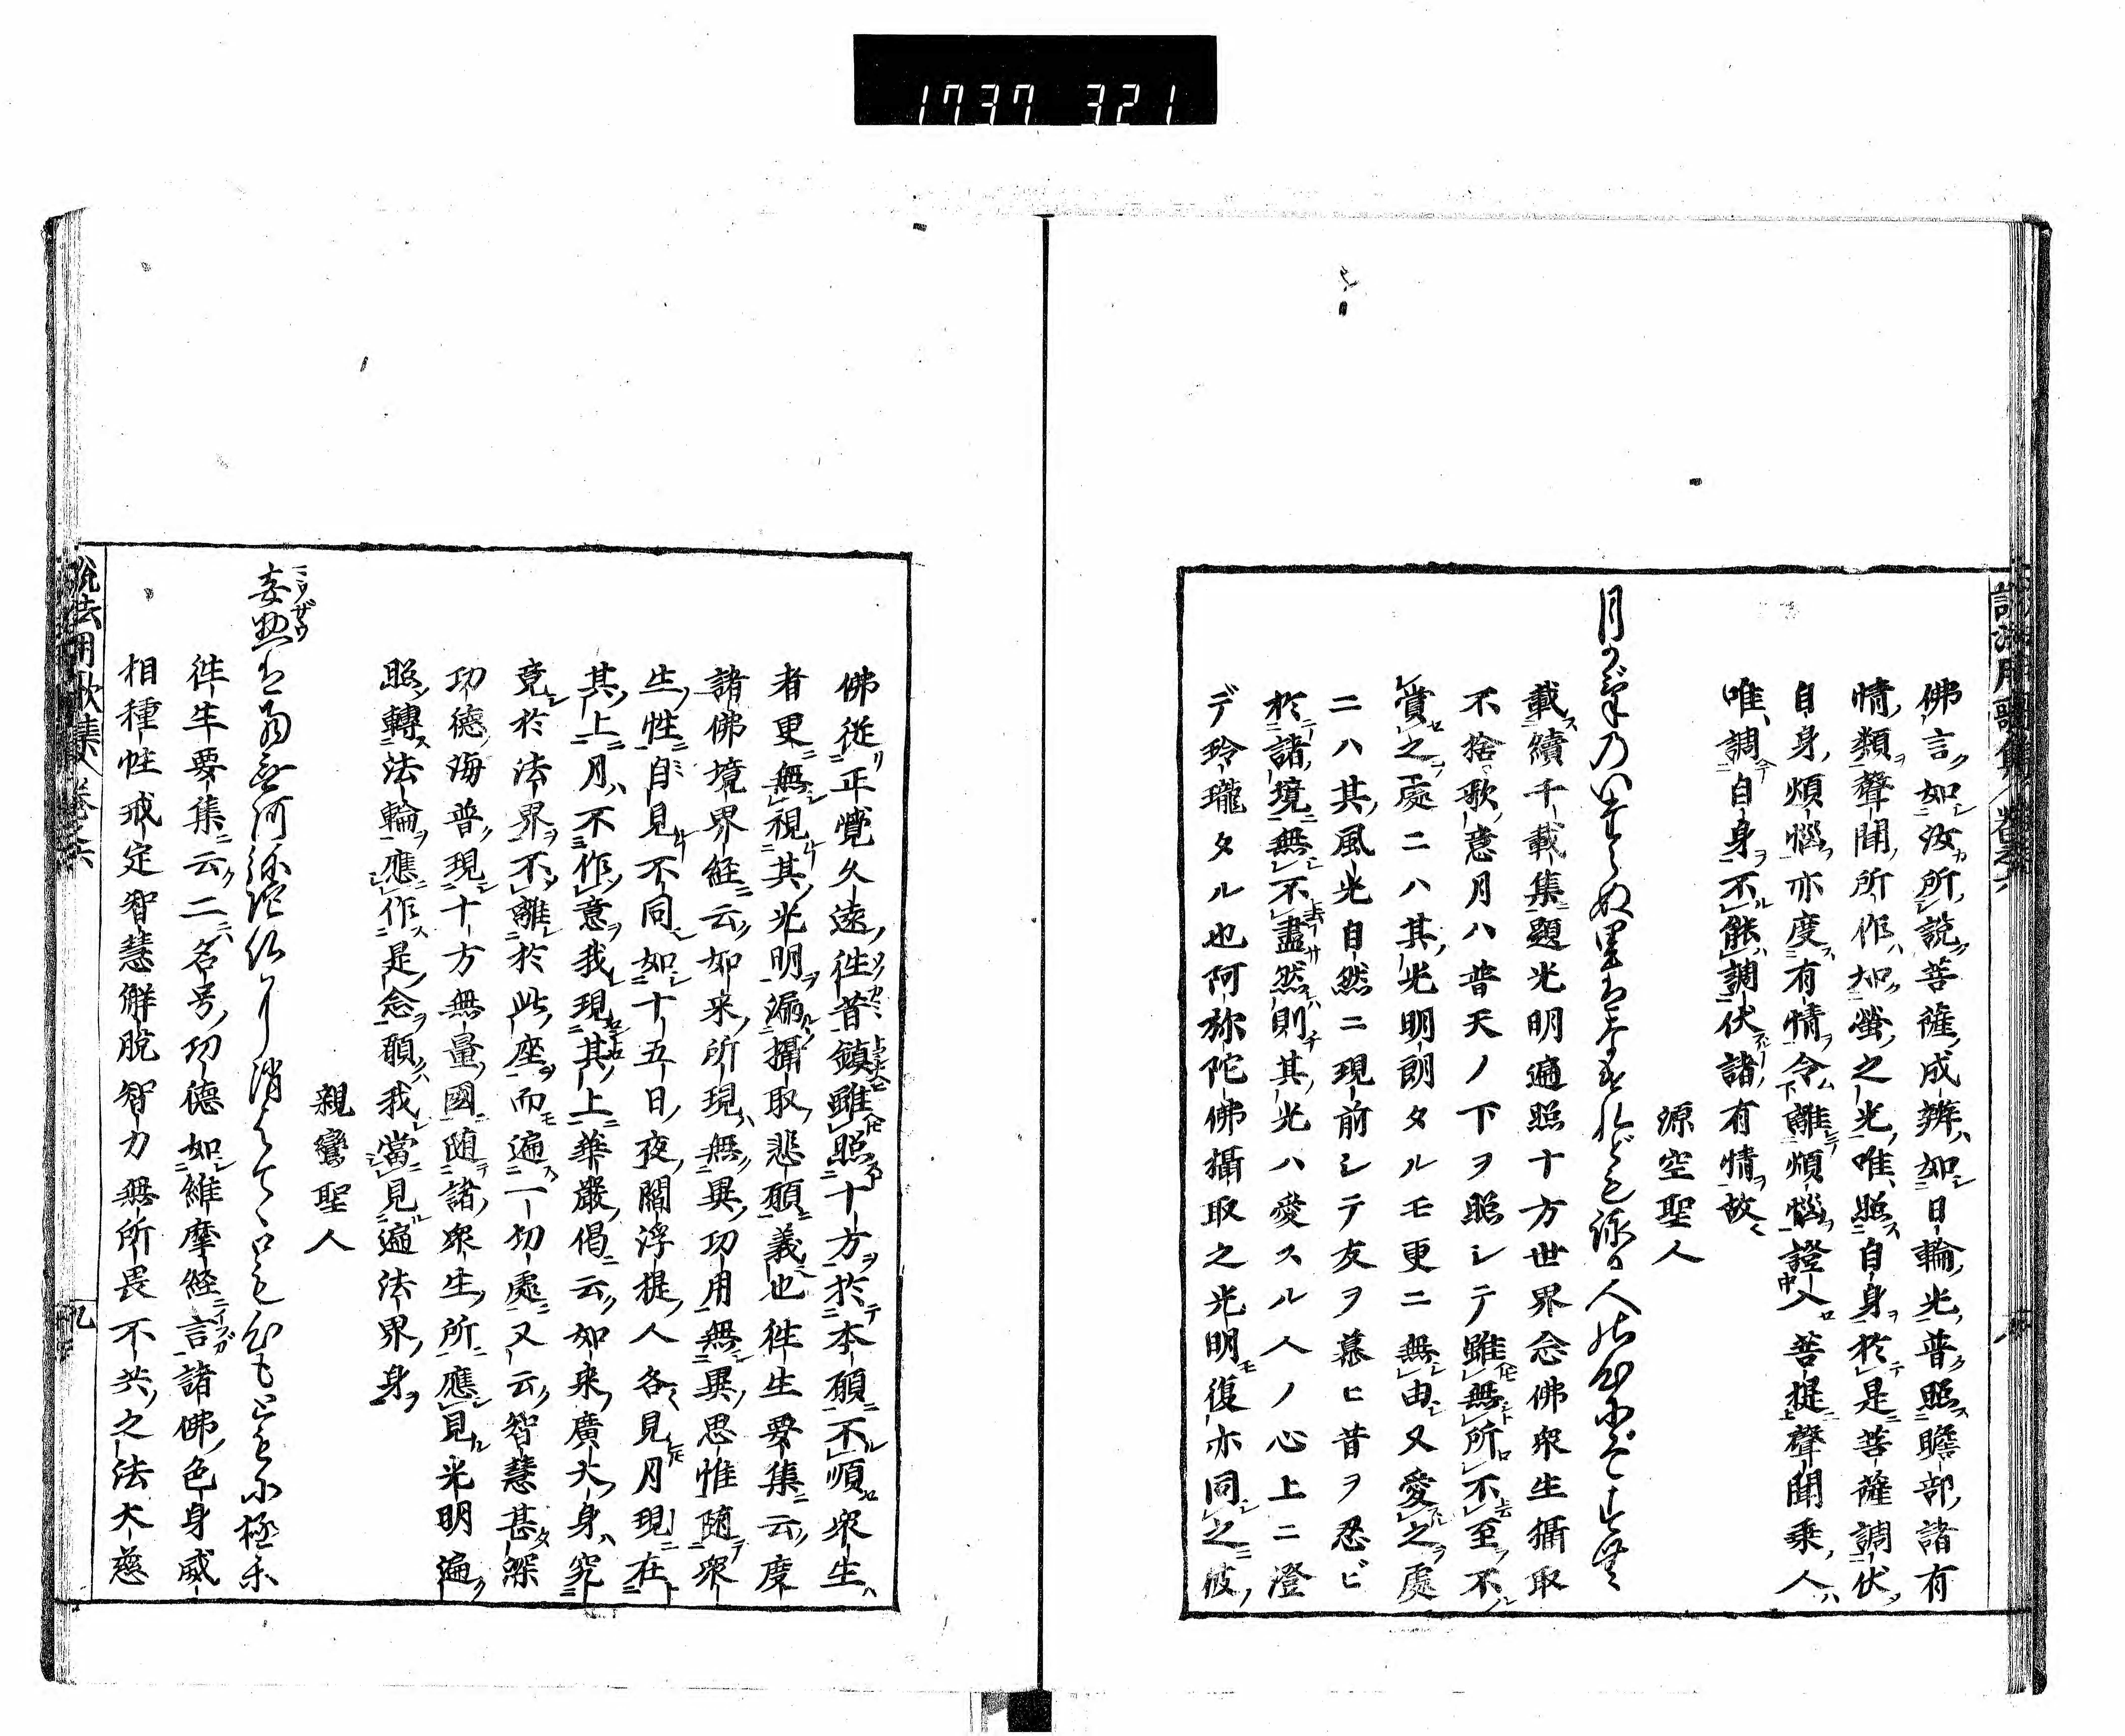 1737 321
佛言如汝所説菩薩成辨如日輪光普照贍部諸有
情類聲聞所作如螢之光唯照自身於是菩薩調伏
自身煩惱亦度有情令離煩惱證入菩提聲聞乘人
唯調自身不能調伏諸有情故
源空聖人
月かげのいたらぬ里はなけれども詠る人の心にぞすむ
載續千載集題光明遍照十方世界念佛衆生攝取
不捨歌意月ハ普天ノ下ヲ照シテ雖無所不至不
賞之處ニハ其光明朗タルモ更ニ無由又愛之處
ニハ其風光自然ニ現前シテ友ヲ慕ヒ昔ヲ忍ビ
於諸境無不盡然則其光ハ愛スル人ノ心上ニ澄
デ玲瓏タル也阿弥陀佛攝取之光明復亦同之彼
佛從正覺久遠徃昔鎮雖照十方於本願不順衆生
者更無視其光明漏攝取悲願義也徃生要集云度
諸佛境界経云如来所現無異功用無異思惟随衆
生性自見不同如十五日夜閻浮提人各見月現在
其上月不作意我現其上華嚴偈云如来廣大身究
竟於法界不離於此座而遍一切處又云智慧甚深
功德海普現十方無量國随諸衆生所應見光明遍
照轉法輪應作是念願我當見遍法界身
親鸞聖人
徃生要集云二名号功德如維摩経言諸佛色身威
相種性戒定智慧解脱智力無所畏不共之法大慈
説法用歌集 卷之六
九